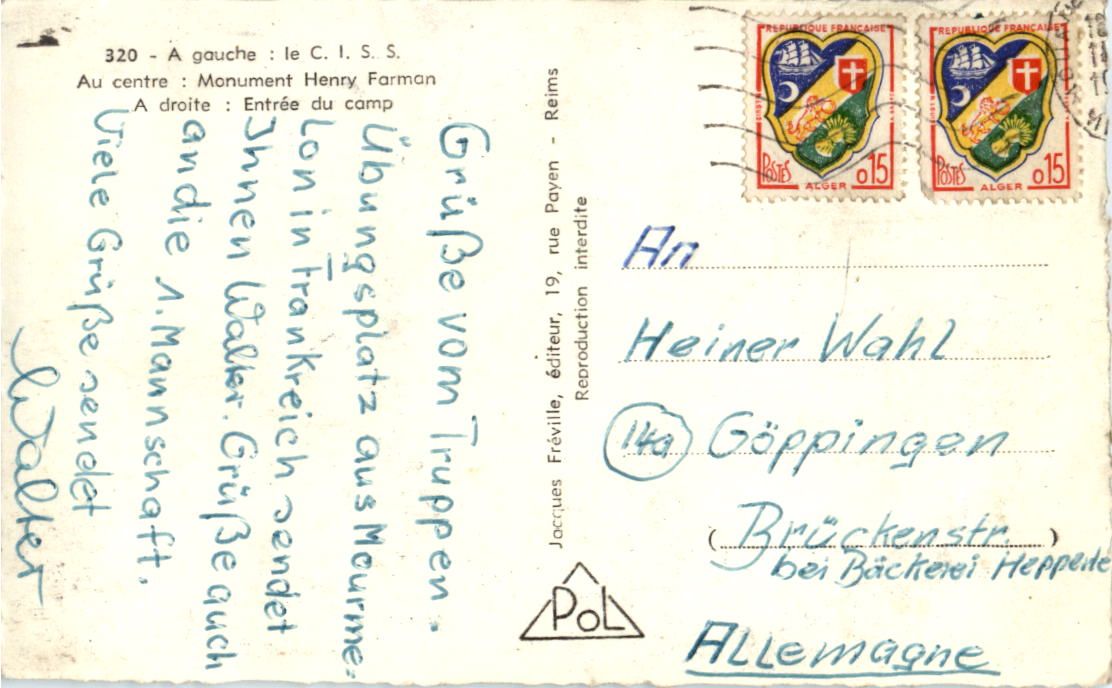 320 - A gauche : le C. I. S. S.
Au centre : Monument Henry Farman
A droite : Entrée du camp
Grüße vom Truppen-
Übungsplatz aus Mourme-
lon in Frankreich sendet
Ihnen Walter. Grüße auch
an die 1. Mannschaft.
Viele Grüße sendet
Walter
Jacques Fréville, éditeur, 19, rue Payen - Reims
Reproduction interdite
PoL
REPUBLIQUE FRANÇAISE
POSTES
ALGER
0,15
REPUBLIQUE FRANÇAISE
POSTES
ALGER
0,15
An
Heiner Wahl
14a Göppingen
( Brückenstr. )
bei Bäckerei Hepperle
ALLemagne